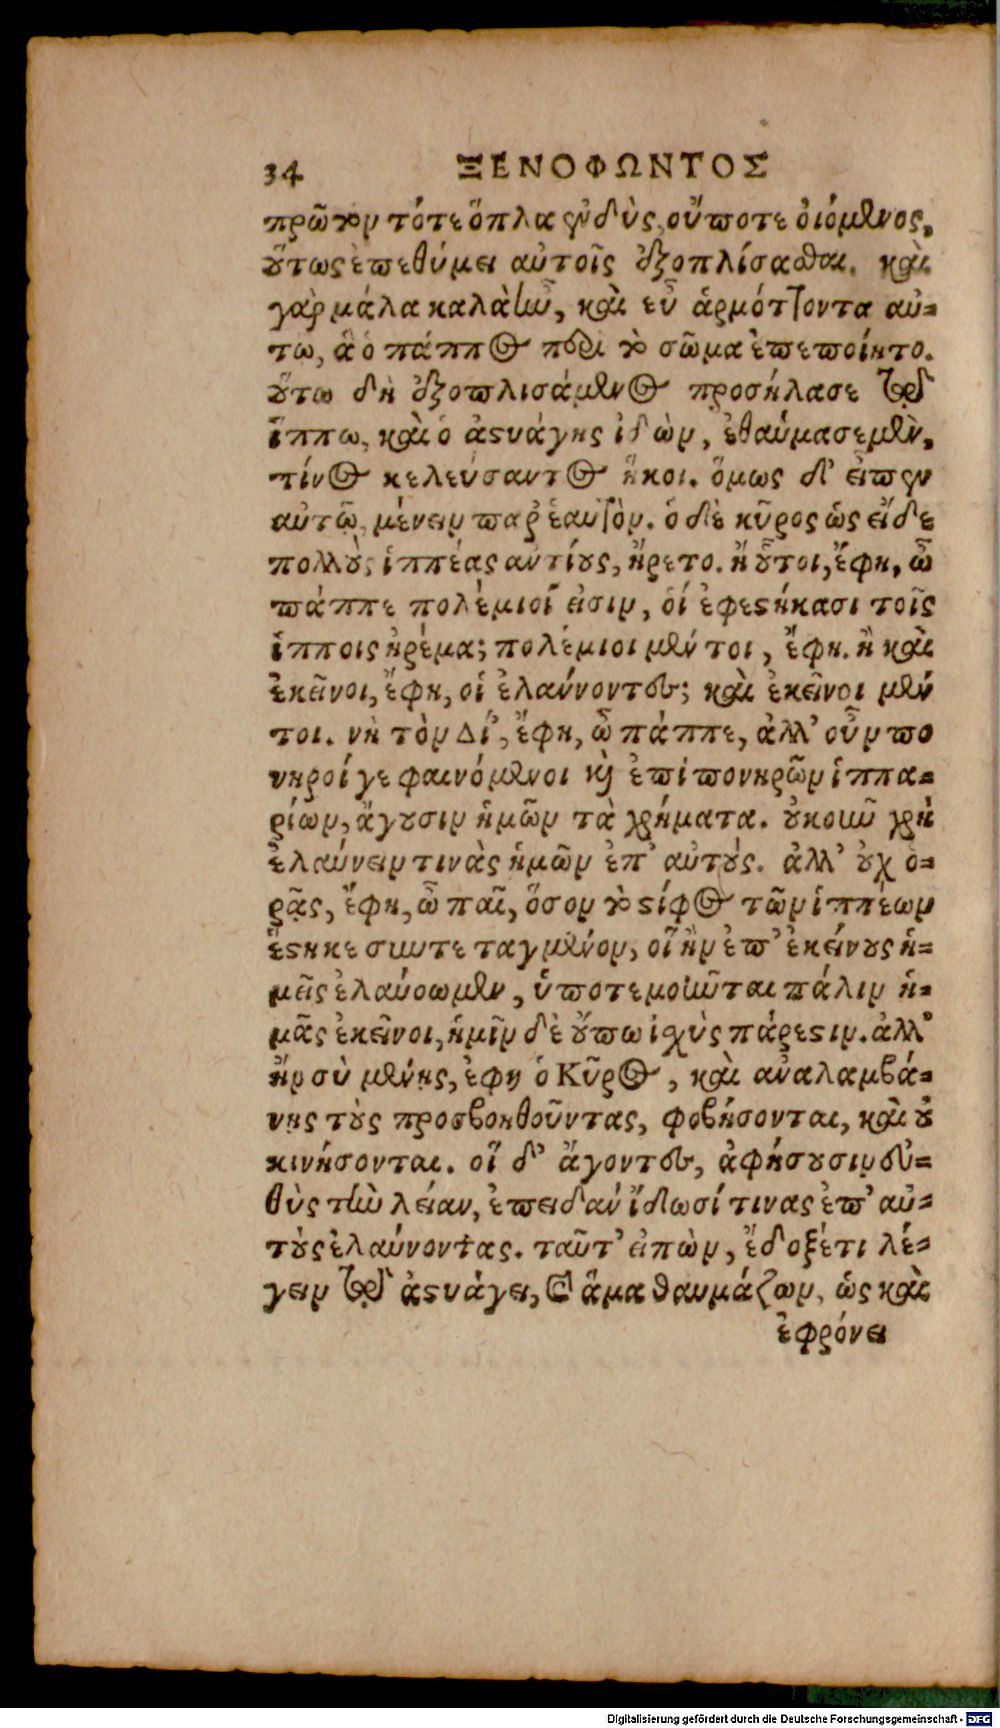 34 ΞΕΝΟΦΩΝΤΟΣ
πρῶτον τότε ὅπλα ἐνδὺς, οὔποτε οἰόμενος,
οὕτως ἐπεθύμει αὐτοῖς ἐξοπλίσασθαι. καὶ
γὰρ μάλα καλὰ ἦν, καὶ εὖ ἁρμόττοντα αὐ-
τῷ, ἃ ὁ πάππος περὶ τὸ σῶμα ἐπεποίητο.
οὕτω δὴ ἐξοπλισάμενος προσήλασε τῷ
ἵππῳ. καὶ ὁ ἀστυάγης ἰδὼν, ἐθαύμασε μὲν,
τίνος κελεύσαντος ἥκοι. ὅμως δ' εἶπεν
αὐτῷ, μένειν παρ' ἑαυτὸν. ὁ δὲ κῦρος ὡς εἶδε
πολλοὺς ἱππέας ἀντίους, ἤρετο. ἦ οὗτοι, ἔφη, ὦ
πάππε πολέμιοί εἰσιν, οἳ ἐφεστήκασι τοῖς
ἵπποις ἠρέμα; πολέμιοι μέντοι, ἔφη. ἦ καὶ
ἐκεῖνοι, ἔφη, οἱ ἐλαύνοντες; καὶ ἐκεῖνοι μέν
τοι. νὴ τὸν Δί', ἔφη, ὦ πάππε, ἀλλ' οὖν πο
νηροί γε φαινόμενοι καὶ ἐπὶ πονηρῶν ἱππα-
ρίων, ἄγουσιν ἡμῶν τὰ χρήματα. οὐκοῦν χρὴ
ἐλαύνειν τινὰς ἡμῶν ἐπ' αὐτούς. ἀλλ' οὐχ ὁ-
ρᾷς, ἔφη, ὦ παῖ, ὅσον τὸ στίφος τῶν ἱππέων
ἕστηκε συντεταγμένον, οἳ ἢν ἐπ' ἐκείνους ἡ-
μεῖς ἐλαύσωμεν, ὑποτεμοῦνται πάλιν ἡ-
μᾶς ἐκεῖνοι, ἡμῖν δὲ οὔπω ἰχὺς πάρεστιν. ἀλλ'
ἢν σὺ μένῃς, ἔφη ὁ Κῦρος, καὶ ἀναλαμβά-
νῃς τοὺς προσβοηθοῦντας, φοβήσονται, καὶ οὐ
κινήσονται. οἳ δ' ἄγοντες, ἀφήσουσιν εὐ-
θὺς τὴν λείαν, ἐπειδὰν ἴδωσί τινας ἐπ' αὐ-
τοὺς ἐλαύνοντας. ταῦτ' εἰπὼν, ἔδοξέ τι λέ-
γειν τῷ ἀστυάγει, καὶ ἅμα θαυμάζων, ὡς καὶ
ἐφρόνει
Digitalisierung gefördert durch die Deutsche Forschungsgemeinschaft - DFG